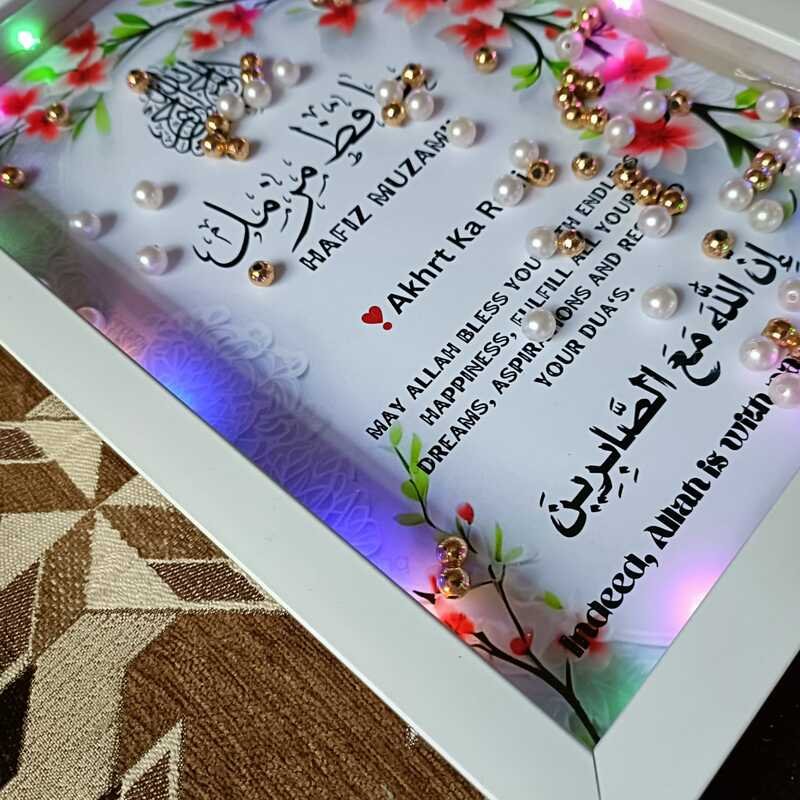 مزمل
HAFIZ
Akhrt Ka
MAY ALLAH BLESS YOU WITH ENDLESS
HAPPINESS, FULFILL ALL YOUR
DREAMS, ASPIRATIONS AND
YOUR DUA'S.
إِنَّ اللَّهَ مَعَ الصَّابِرِينَ
Indeed, Allah is with